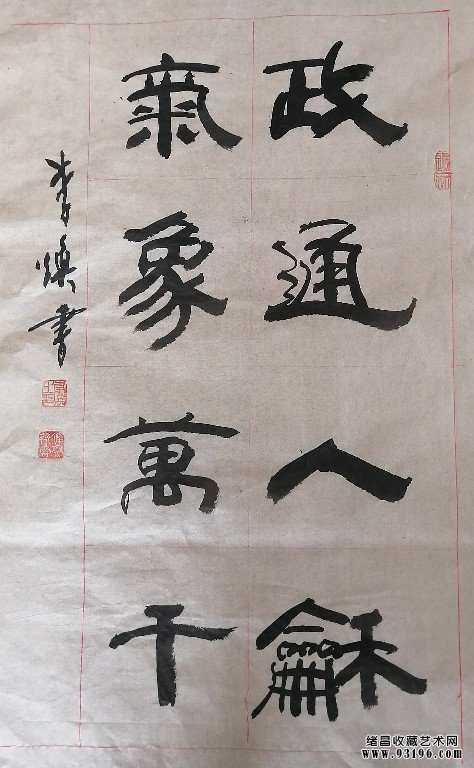 政通人龢
气象萬千
李焕书
绪昌收藏艺术网
www.93196.com